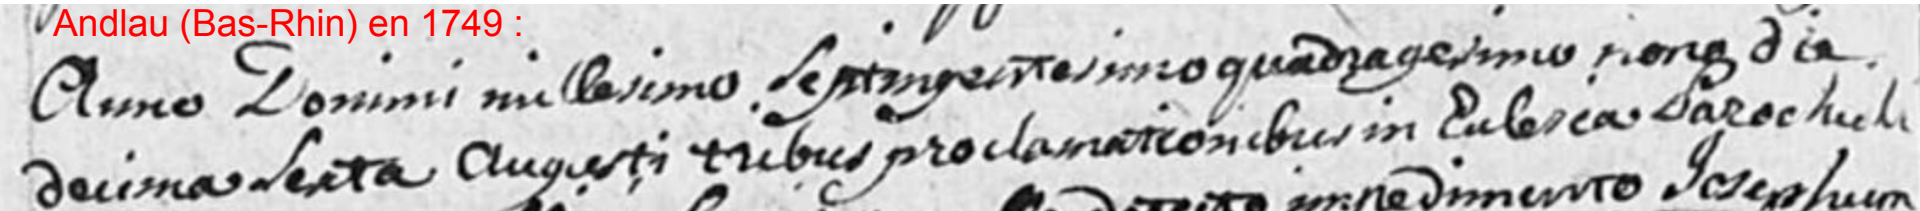 Andlau (Bas-Rhin) en 1749 :
Anno Domini millesimo septingentesimo quadragesimo nono die
decima sexta Augusti tribus proclamationibus in Eclesia Parochiali
detecto impedimento Josephum